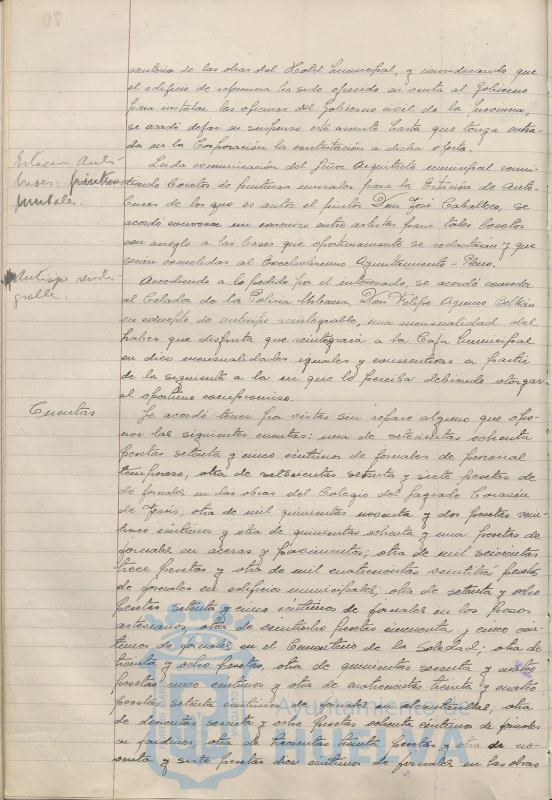 cantería de las obras del Hotel Municipal, y considerando que
el edificio de referencia ha sido ofrecido en venta al Gobierno
para instalar las oficinas del Gobierno civil de la Provincia,
se acordó dejar en suspenso este asunto hasta que tenga entra-
da en la Corporación la contestación a dicha oferta.
Estación Auto-
buses: pinturas
murales.
Leída comunicación del Señor Arquitecto municipal remi-
tiendo bocetos de pinturas murales para la Estación de Auto-
buses de los que es autor el pintor Don José Caballero, se
acordó convocar un concurso entre artistas para tales bocetos
con arreglo a las bases que oportunamente se redactarán y que
serán sometidas al Excelentísimo Ayuntamiento-Pleno.
Anticipo reinte-
grable.
Accediendo a lo pedido por el interesado, se acordó conceder
al Celador de la Policía Urbana, Don Felipe
en concepto de anticipo reintegrable, una mensualidad del
haber que disfruta que reintegrará a la Caja Municipal
en diez mensualidades iguales y consecutivas a partir
de la siguiente a la en que lo perciba debiendo otorgar
el oportuno compromiso.
Cuentas
Se acordó tener por vistas sin reparo alguno que opo-
ner las siguientes cuentas: una de setecientas ochenta
pesetas setenta y cinco céntimos de jornales de personal
temporero, otra de setecientas setenta y siete pesetas de
de jornales en las obras del Colegio del Sagrado Corazón
de Jesús, otra de mil quinientas noventa y dos pesetas vein-
ticinco céntimos y otra de quinientas ochenta y una pesetas de
jornales en aceras y pavimentos; otra de mil seiscientas
trece pesetas y otra de mil cuatrocientas veintitrés pesetas
de jornales en edificios municipales; otra de setenta y ocho
pesetas setenta y cinco céntimos de jornales en los Pozos
artesianos, otra de veintiocho pesetas cincuenta y cinco cén-
timos de jornales en el Cementerio de la Soledad; otra de
treinta y ocho pesetas, otra de quinientas sesenta y cuatro
pesetas cinco céntimos y otra de cuatrocientas treinta y cuatro
pesetas setenta céntimos de jornales en alcantarillas, otra
de doscientas sesenta y ocho pesetas ochenta céntimos de jornales
en jardines, otra de trescientas treinta pesetas y otra de no-
venta y siete pesetas diez céntimos de jornales en las obras
Ayuntamiento
HUELVA